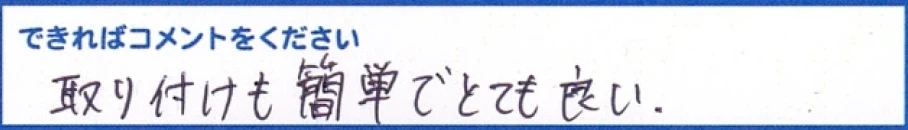 できればコメントをください
取り付けも簡単でとても良い.